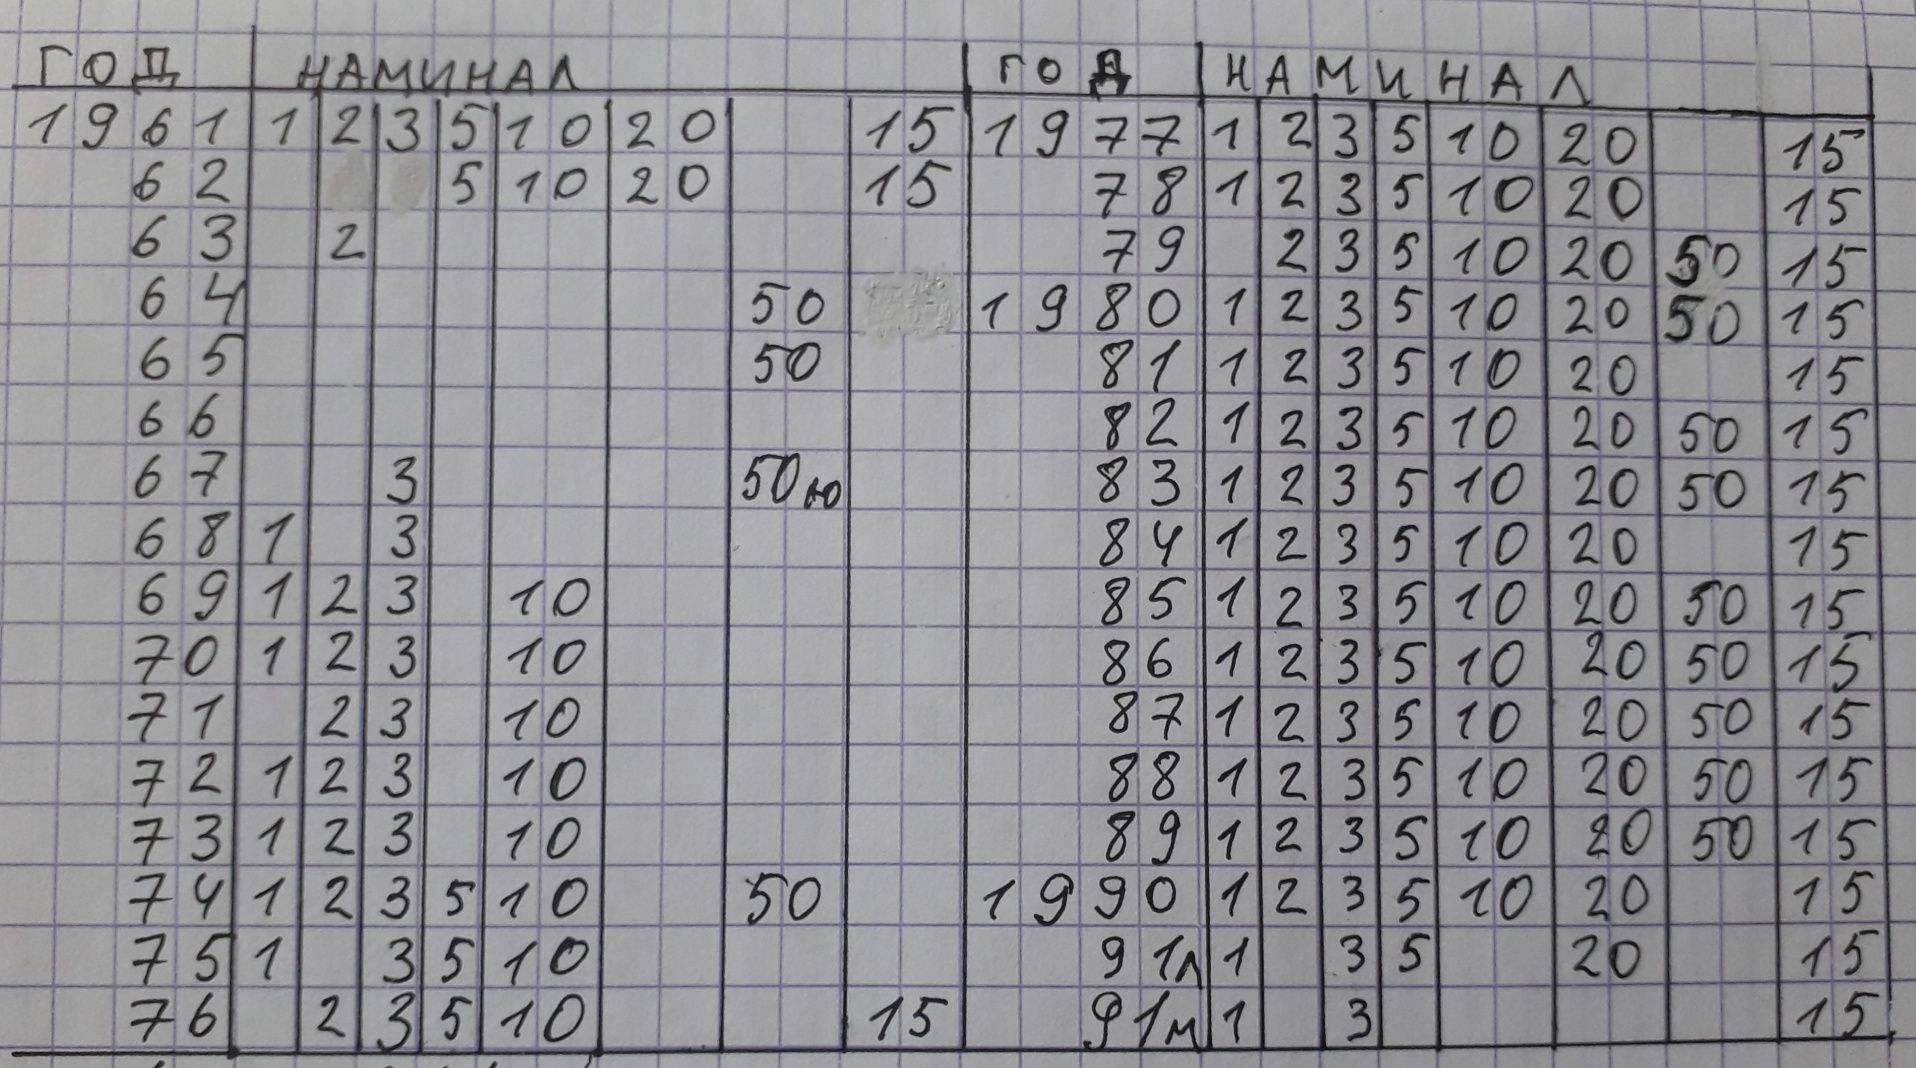 ГОД НАМИНАЛ ГОД НАМИНАЛ
1961 1 2 3 5 10 20 15 1977 1 2 3 5 10 20 15
62 5 10 20 15 78 1 2 3 5 10 20 15
63 2 79 2 3 5 10 20 50 15
64 50 1980 1 2 3 5 10 20 50 15
65 50 81 1 2 3 5 10 20 15
66 82 1 2 3 5 10 20 50 15
67 3 50ю 83 1 2 3 5 10 20 50 15
68 1 3 84 1 2 3 5 10 20 15
69 1 2 3 10 85 1 2 3 5 10 20 50 15
70 1 2 3 10 86 1 2 3 5 10 20 50 15
71 2 3 10 87 1 2 3 5 10 20 50 15
72 1 2 3 10 88 1 2 3 5 10 20 50 15
73 1 2 3 10 89 1 2 3 5 10 20 50 15
74 1 2 3 5 10 50 1990 1 2 3 5 10 20 15
75 1 3 5 10 91л 1 3 5 20 15
76 2 3 5 10 15 91м 1 3 15